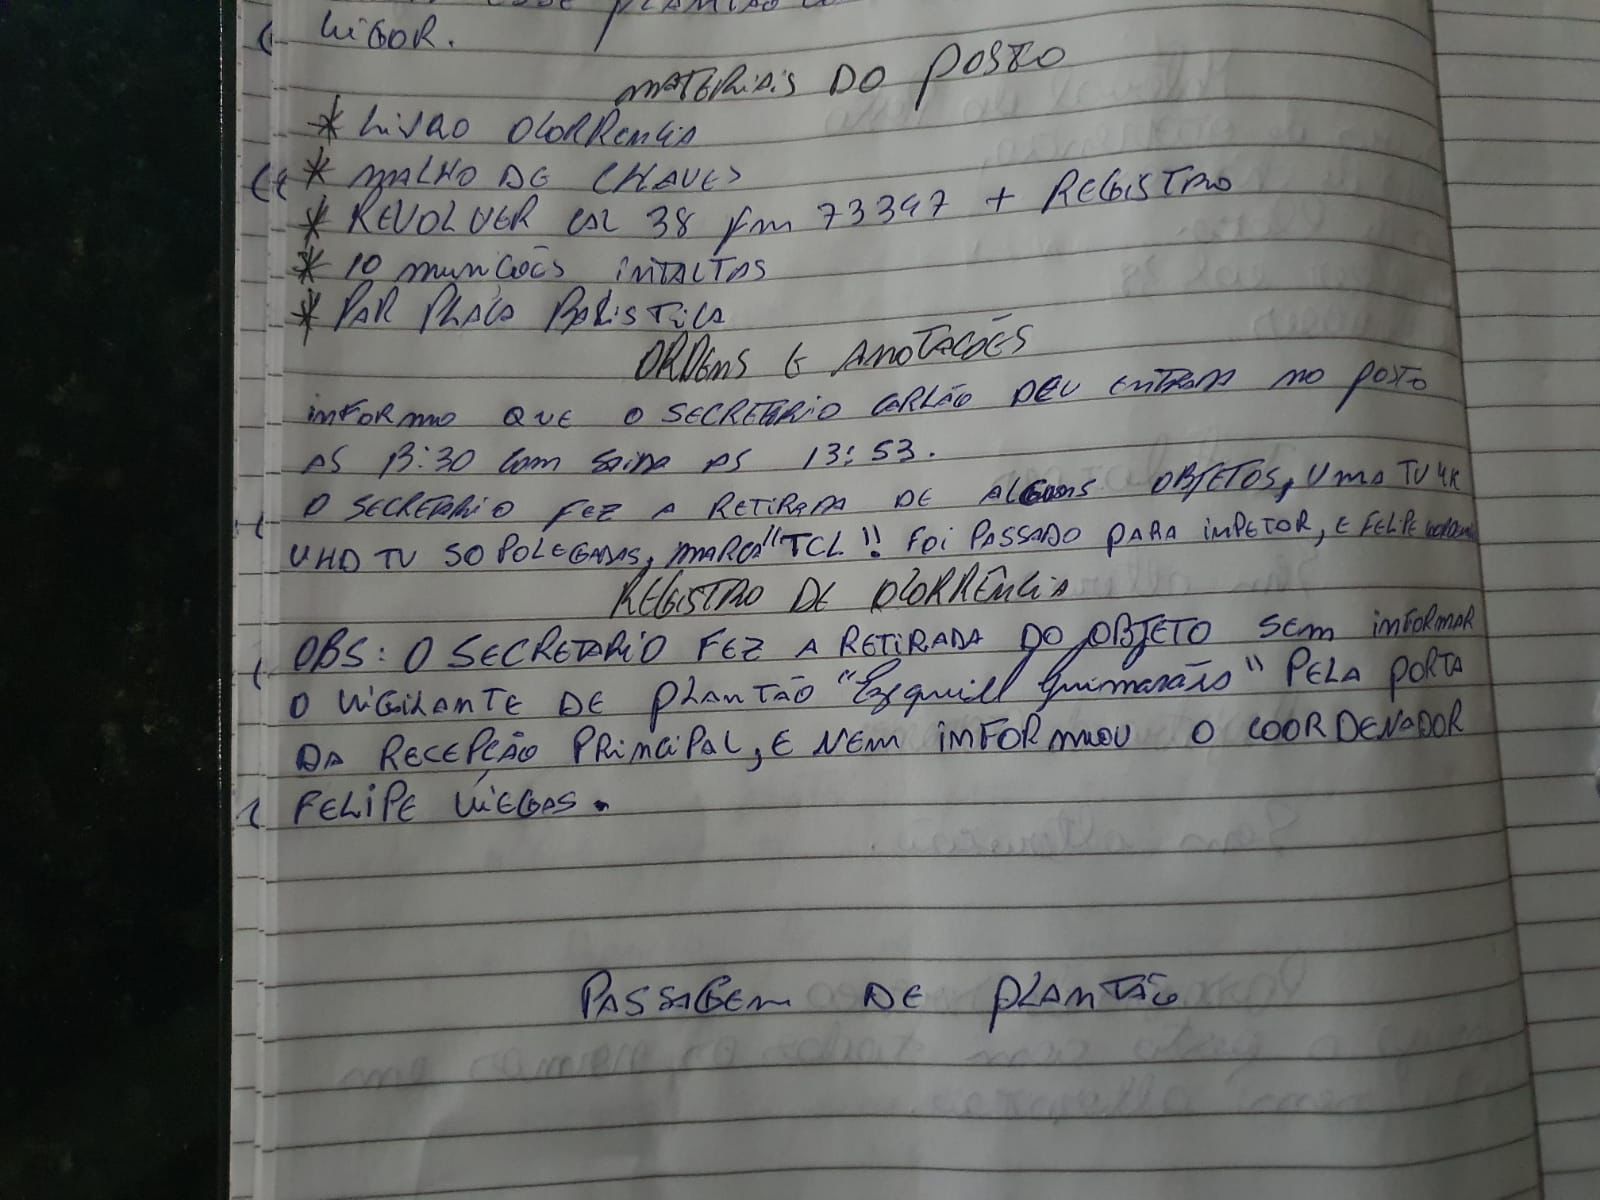 ESSE PLANTÃO
VIGOR.
MATERIAIS DO POSTO
* LIVRO OCORRENCIA
* MALHO DE CHAVES
* REVOLVER CAL 38 Fm 73347 + REGISTRO
* 10 MUNIÇÕES INTACTAS
* PAR PLACA BALISTICA
ORDENS E ANOTAÇÕES
INFORMO QUE O SECRETARIO CARLÃO DEU ENTRADA NO POSTO
AS 13:30 COM SAIDA AS 13:53.
O SECRETARIO FEZ A RETIRADA DE ALGUNS OBJETOS, UMA TV 4K
UHD TV 50 POLEGADAS, MARCA "TCL"! FOI PASSADO PARA IMPETOR, E FELIPE
REGISTRO DE OCORRÊNCIA
OBS: O SECRETARIO FEZ A RETIRADA DO OBJETO SEM INFORMAR
O VIGILANTE DE PLANTÃO "Ezequiel Guimarães" PELA PORTA
DA RECEPÇÃO PRINCIPAL, E NEM INFORMOU O COORDENADOR
FELIPE VIEGAS.
PASSAGEM DE PLANTÃO